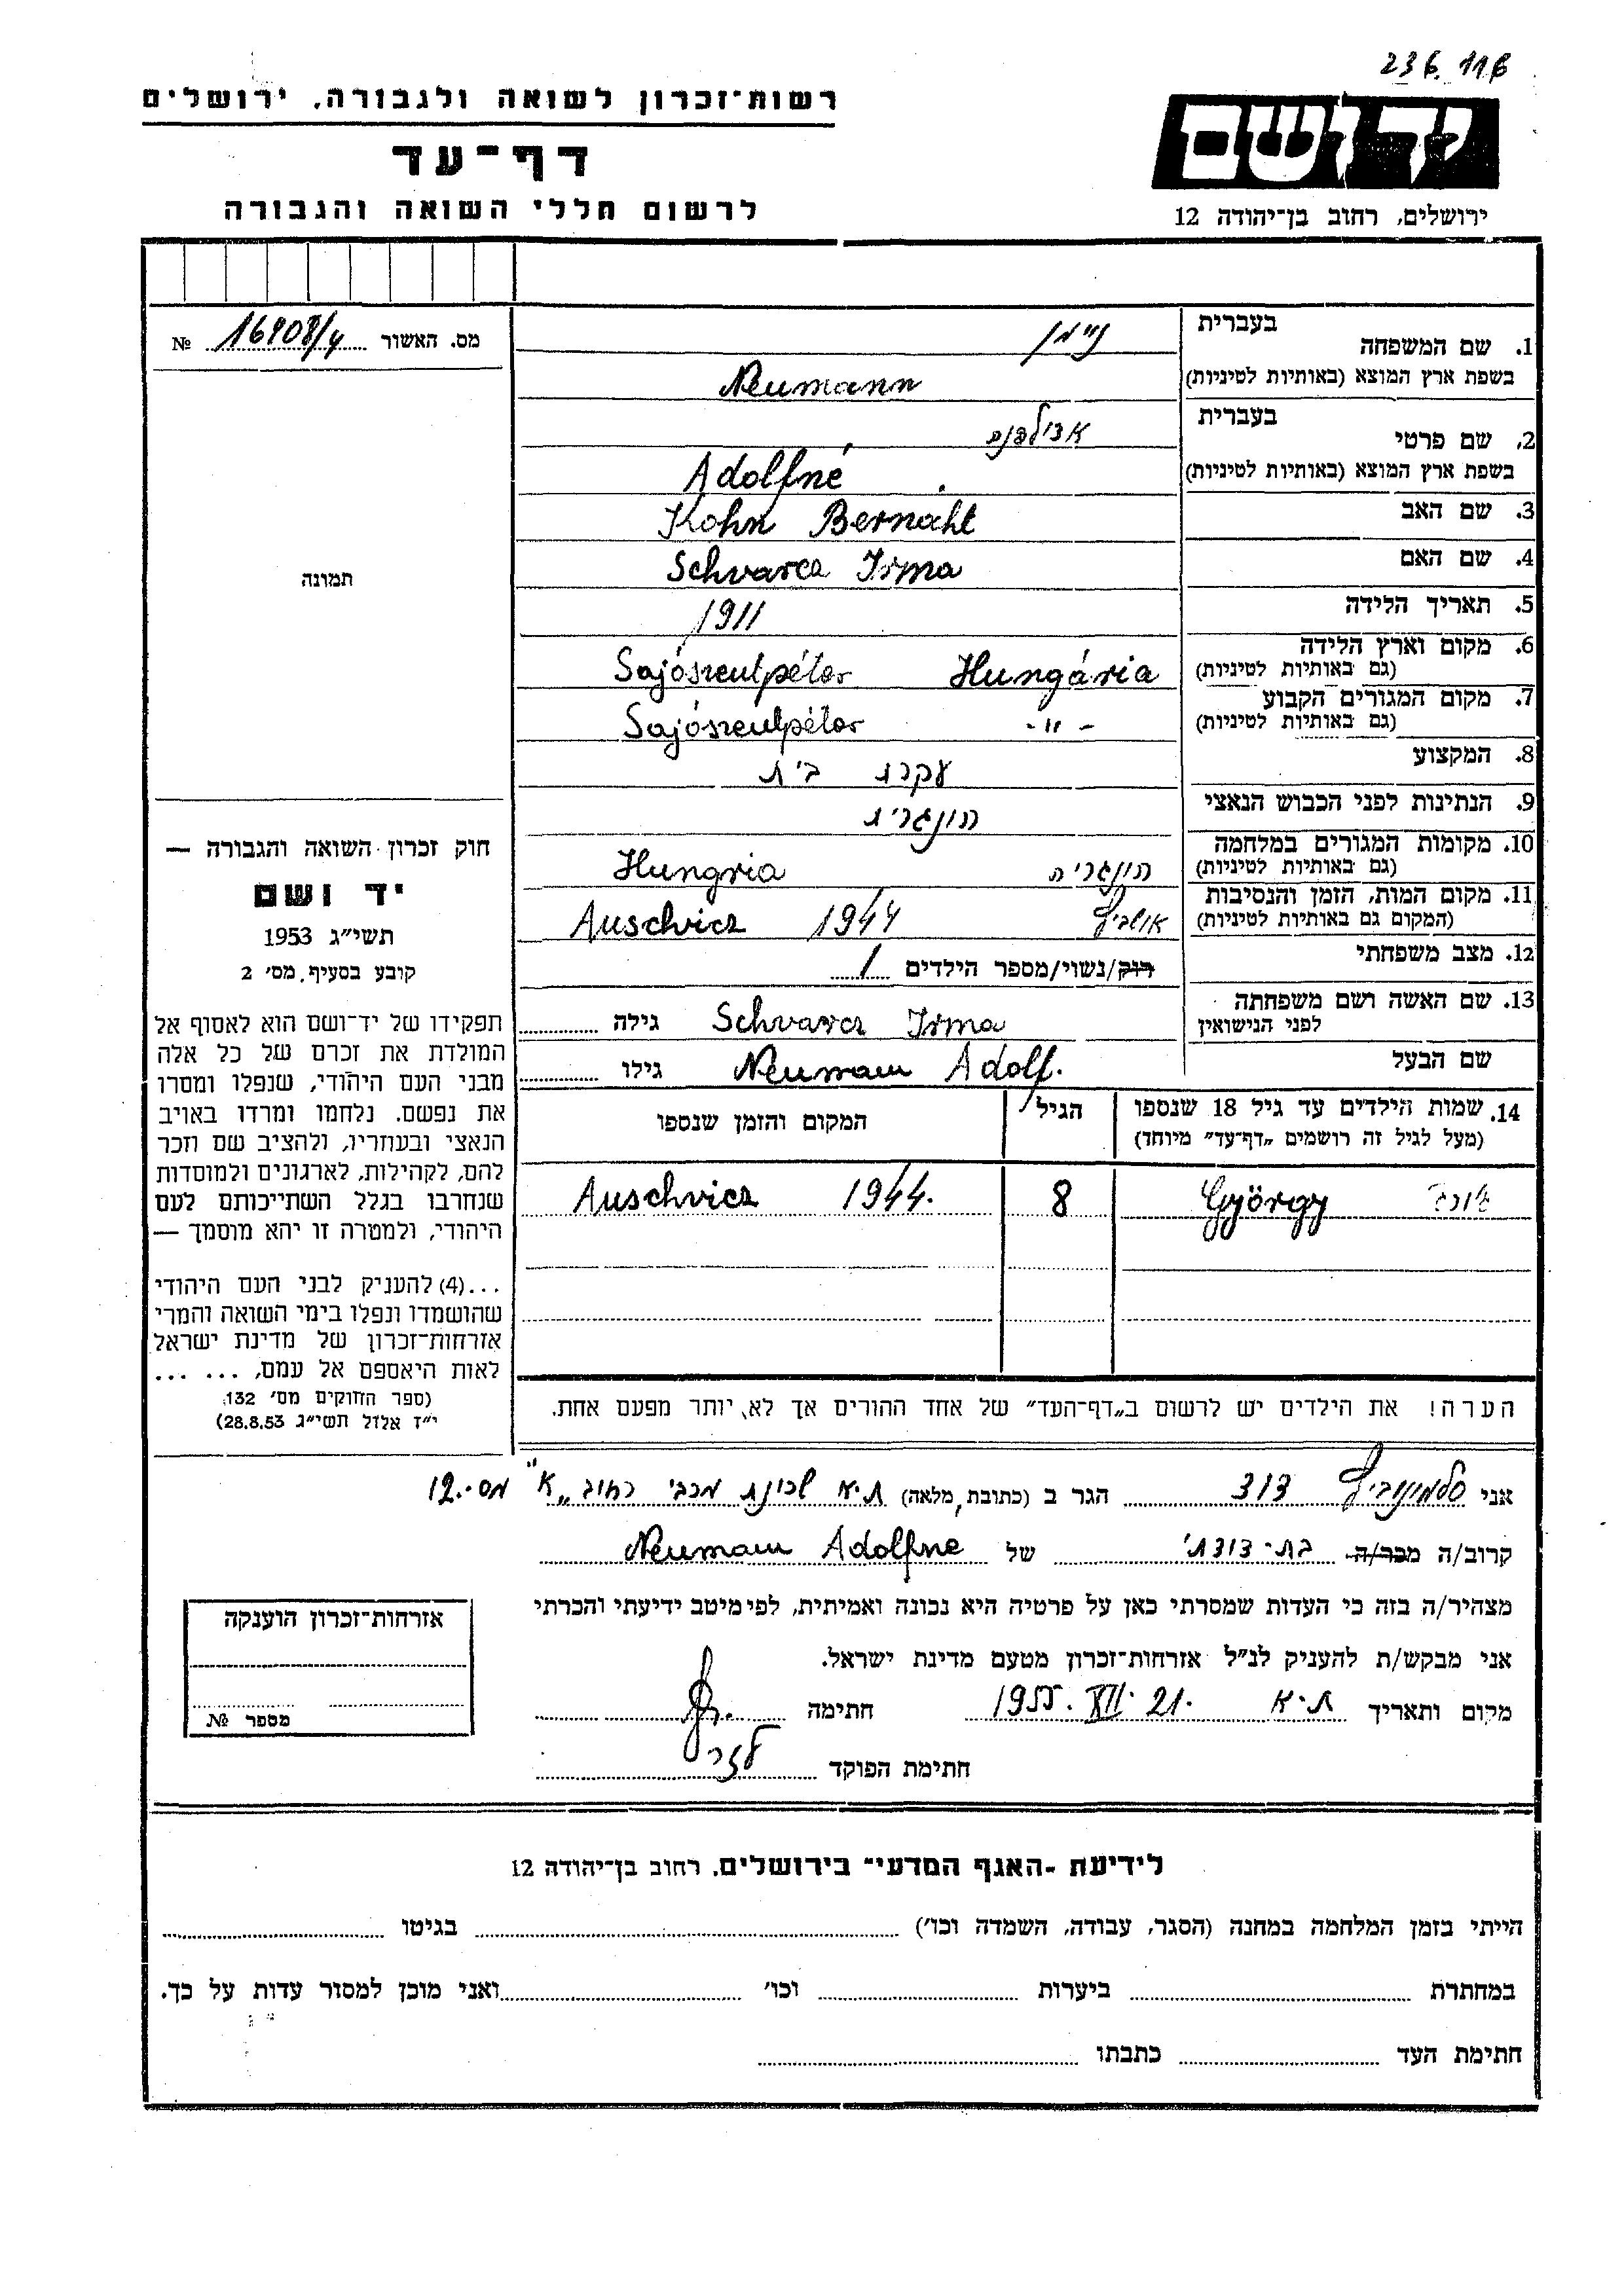 236 116
רשות־זכרון לשואה ולגבורה, ירושלים
דף־עד
לרשום חללי השואה והגבורה
יד ושם
ירושלים, רחוב בן־יהודה 12
מס. האשור 16908/4 №
תמונה
חוק זכרון השואה והגבורה —
יד ושם
תשי״ג 1953
קובע בסעיף מס׳ 2
תפקידו של יד־ושם הוא לאסוף אל
המולדת את זכרם של כל אלה
מבני העם היהודי, שנפלו ומסרו
את נפשם. נלחמו ומרדו באויב
הנאצי ובעוזריו, ולהציב שם וזכר
להם, לקהילות, לארגונים ולמוסדות
שנחרבו בגלל השתייכותם לעם
היהודי, ולמטרה זו יהא מוסמך —
...(4) להעניק לבני העם היהודי
שהושמדו ונפלו בימי השואה והמרי
אזרחות־זכרון של מדינת ישראל
לאות היאספם אל עמם, ... ...
(ספר החוקים מס׳ 132,
י״ז אלול תשי״ג 28.8.53)
1. שם המשפחה בעברית ניימן
בשפת ארץ המוצא (באותיות לטיניות) Neumann
2. שם פרטי בעברית
בשפת ארץ המוצא (באותיות לטיניות) Adolfné
3. שם האב Kohn Bernáht
4. שם האם Schvarcz Irma
5. תאריך הלידה 1911
6. מקום וארץ הלידה (גם באותיות לטיניות) Sajószentpéter Hungária
7. מקום המגורים הקבוע (גם באותיות לטיניות) Sajószentpéter -"-
8. המקצוע עקרת בית
9. הנתינות לפני הכבוש הנאצי הונגרית
10. מקומות המגורים במלחמה (גם באותיות לטיניות) הונגריה Hungria
11. מקום המות, הזמן והנסיבות (המקום גם באותיות לטיניות) אושביץ 1944 Auschvicz
12. מצב משפחתי רוק/נשוי/מספר הילדים 1
13. שם האשה ושם משפחתה לפני הנישואין Schvarcz Irma גילה
שם הבעל Neumann Adolf. גילו
14. שמות הילדים עד גיל 18 שנספו הגיל המקום והזמן שנספו
(מעל לגיל זה רושמים „דף־עד״ מיוחד)
György 8 Auschvicz 1944.
הערה! את הילדים יש לרשום ב„דף־העד״ של אחד ההורים אך לא, יותר מפעם אחת.
אני סלמונוביץ דוד הגר ב (כתובת מלאה) ת.א שכונת מכבי רחוב „א״ מס. 12
קרוב/ה מכר/ה בת-דודתי של Neumann Adolfne
מצהיר/ה בזה כי העדות שמסרתי כאן על פרטיה היא נכונה ואמיתית, לפי מיטב ידיעתי והכרתי
אני מבקש/ת להעניק לנ״ל אזרחות־זכרון מטעם מדינת ישראל.
מקום ותאריך ת.א 21. XII. 1955 חתימה
חתימת הפוקד
אזרחות־זכרון הוענקה
מספר №
לידיעת -האגף המדעי״ בירושלים. רחוב בן־יהודה 12
הייתי בזמן המלחמה במחנה (הסגר, עבודה, השמדה וכו׳) בגיטו
במחתרת ביערות וכו׳ ואני מוכן למסור עדות על כך.
חתימת העד כתבתו